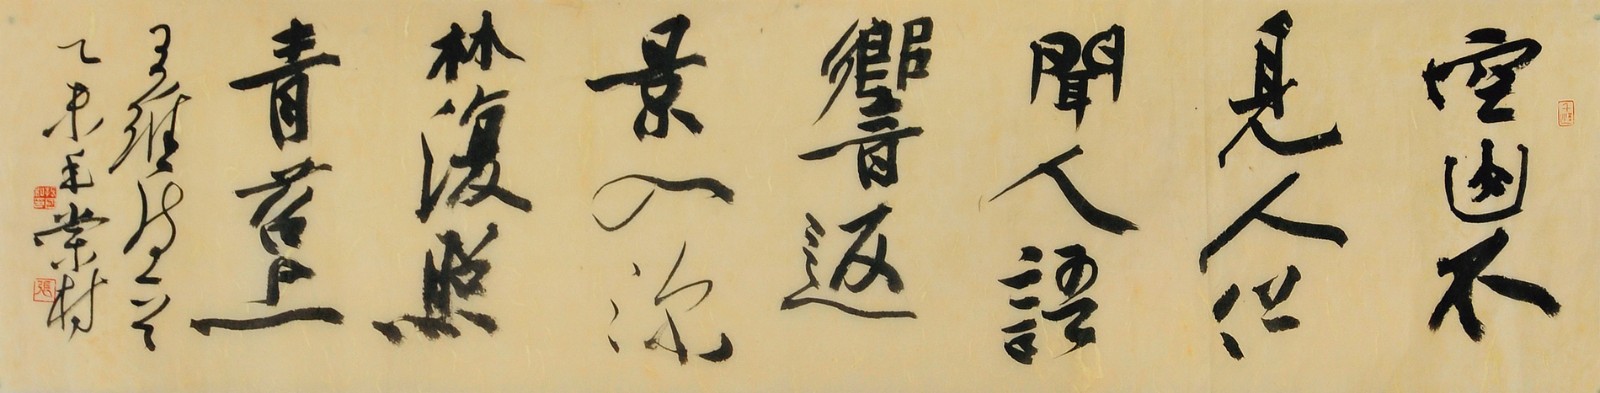 空山不
見人但
聞人語
響返
景入深
林復照
青苔上
王維詩一首
乙未棠村
張